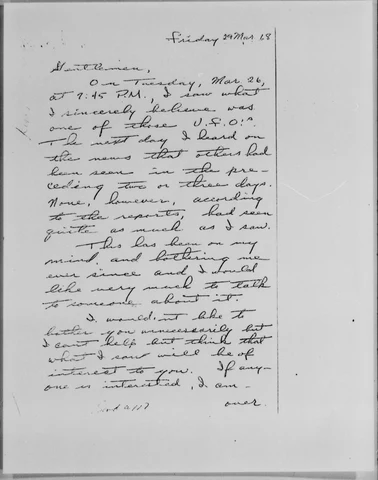 Friday 29 Mar 68
Gentlemen,
On Tuesday, Mar 26,
at 9:45 P.M., I saw what
I sincerely believe was
one of those U.F.O.'s.
The next day I heard on
the news that others had
been seen in the pre-
ceding two or three days.
None, however, according
to the reports, had seen
quite as much as I saw.
This has been on my
mind and bothering me
ever since and I would
like very much to talk
to someone about it.
I would'nt like to
bother you unnecessarily but
I cant help but think that
what I saw will be of
interest to you. If any-
one is interested, I am
over